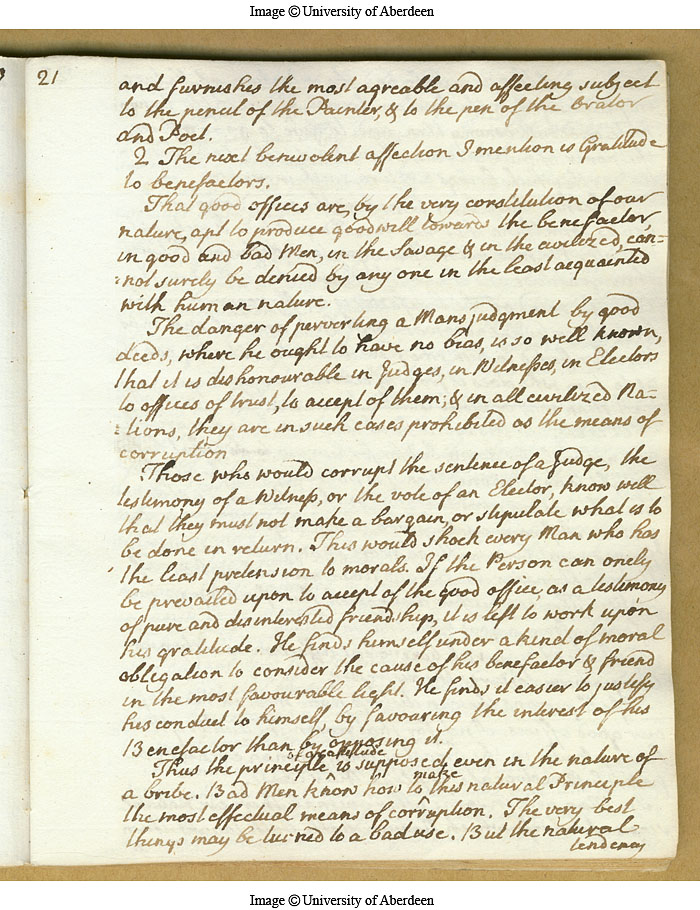 Image © University of Aberdeen
21
and furnishes the most agreable and affecting subject
to the pencil of the Painter, & to the pen of the Orator
and Poet.
2 The next benevolent affection I mention is Gratitude
to benefactors.
That good offices are, by the very constitution of our
nature, apt to produce goodwill towards the benefactor,
in good and bad Men, in the Savage & in the civilized, can=
=not surely be denied by any one in the least acquainted
with human nature.
The danger of perverting a Mans judgment by good
deeds, where he ought to have no bias, is so well known,
that it is dishonourable in Judges, in Witnesses, in Electors
to offices of trust, to accept of them; & in all civilized Na=
=tions, they are in such cases prohibited as the means of
corruption
Those who would corrupt the sentence of a Judge, the
testimony of a Witness, or the vote of an Elector, know well
that they must not make a bargain, or stipulate what is to
be done in return. This would shock every Man who has
the least pretension to morals. If the Person can onely
be prevailed upon to accept of the good office, as a testimony
of pure and disinterested friendship, it is left to work upon
his gratitude. He finds himself under a kind of moral
obligation to consider the cause of his benefactor & friend
in the most favourable light. He finds it easier to justify
his conduct to himself, by favouring the interest of his
Benefactor than by opposing it.
of gratitude
Thus the principle is supposed, even in the nature of
make
a bribe. Bad Men know how to this natural Principle
the most effectual means of corruption. The very best
things may be turned to a bad use. But the natural
tendency
Image © University of Aberdeen